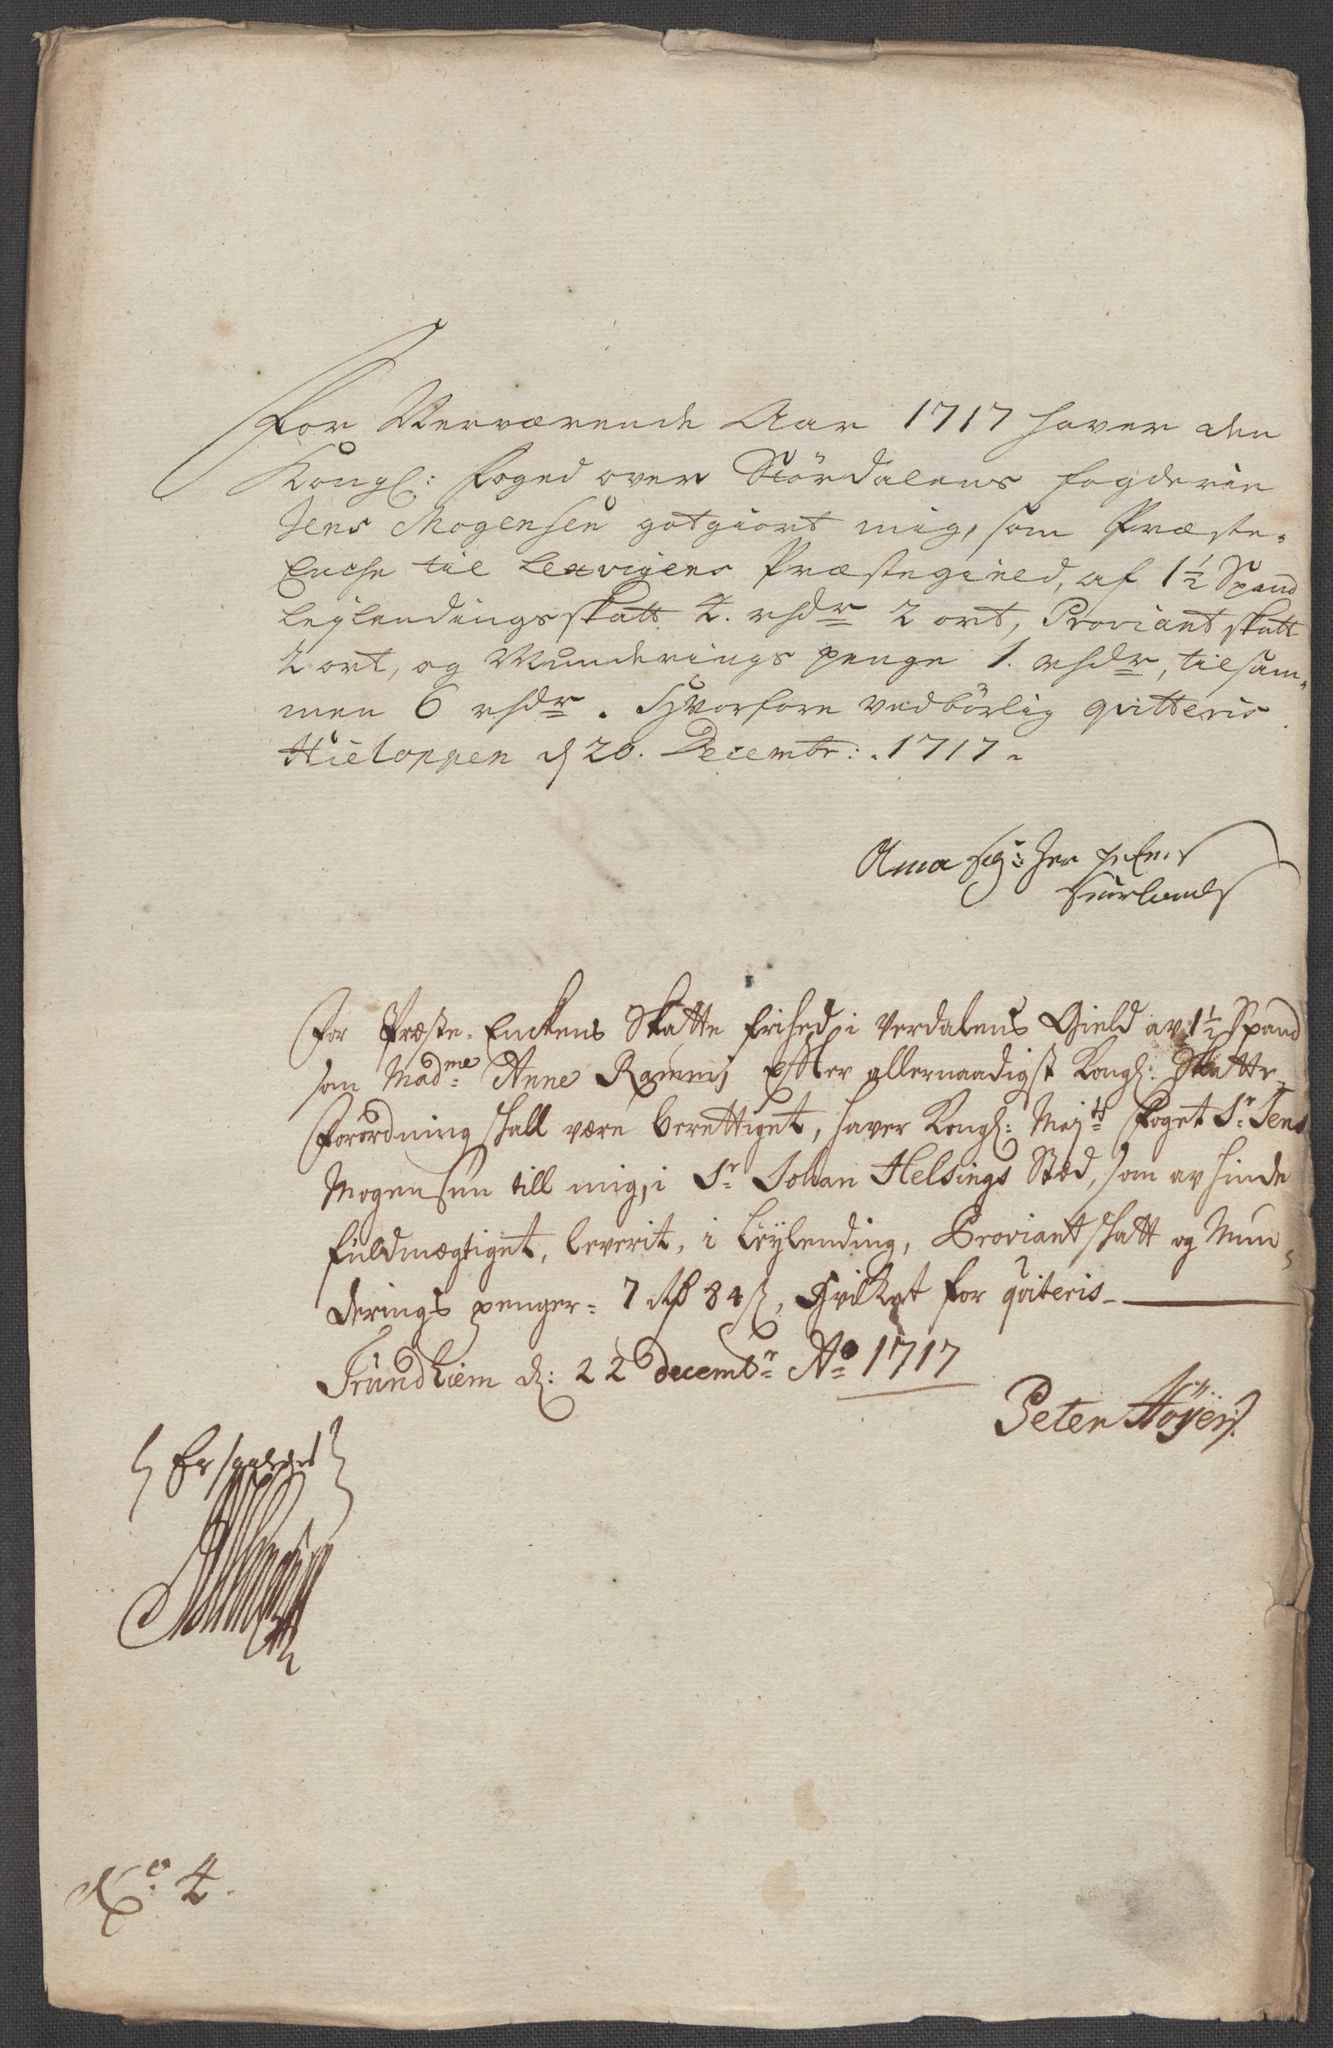 For Nerværende Aar 1717 haver den
Kongl: Foged over Størdalens fogderie
Jens Mogensen gotgiort mig, som Præste-
Enche til Lexvigens Præstegield, af 1½ Spand
Leylendingsskatt 4. rhdr 2 ort, Proviantskatt
2 ort, og Munderings penge 1. rhdr, tilsam-
men 6 rhdr. Hvorfore vedbörlig qvitteris
Hieloppen d 20. Decembr: 1717.
Anna Sl: Her
For Præste-Enckens Skatte frihed i Verdalens Gield av 1½ Spand
som Madme Anne Ramus efter allernaadigst Kongl: Skatte-
Forordning skall være berettiget, haver Kongl: Majts Foget Sr Jens
Mogensen till mig, i Sr Johan Helsings Stæd, som av hinde
fuldmægtiget, leverit, i Leylending, Proviantskatt og Mun-
derings penger = 7 Rd 84 s, Hvilket for qviteris
Trundhiem d: 22 decembr Ao 1717
Peter Höyer
No 4.